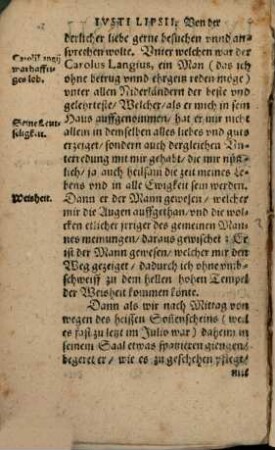 IVSTI LIPSII, Von der
derlicher liebe gerne besuchen vnnd an-
sprechen wolte. Vnter welchen war der
Caroli Langij
Carolus Langius, ein Man (das ich
warhafftiges lob.
ohne betrug vnnd ehrgein reden möge)
vnter allen Niderländern der beste vnd
gelehrteste/ Welcher/ als er mich in sein
Haus auffgenommen/ hat er mir nicht
Seine Leut-
seligkeit.
allein in demselben alles liebes vnd guts
erzeiget/ sondern auch dergleichen Vn-
terredung mit mir gehabt/ die mir nütz-
lich/ ja auch heilsam die zeit meines Le-
bens vnd in alle Ewigkeit sein werden.
Weisheit.
Dann er der Mann gewesen/ welcher
mir die Augen auffgethan/ vnd die wol-
cken etlicher jrriger des gemeinen Man-
nes meinungen/ daraus gewischet: Er
ist der Mann gewesen/ welcher mir den
Weg gezeiget/ dadurch ich ohne vmb-
schweiff zu dem hellen hohen Tempel
der Weisheit kommen könte.
Dann als wir nach Mittag von
wegen des heissen Soñenscheins (weil
es fast zu letzt im Julio war) daheim in
seinem Saal etwas spatzieren giengen/
begeret er/ wie es zu geschehen pfleget/
mit